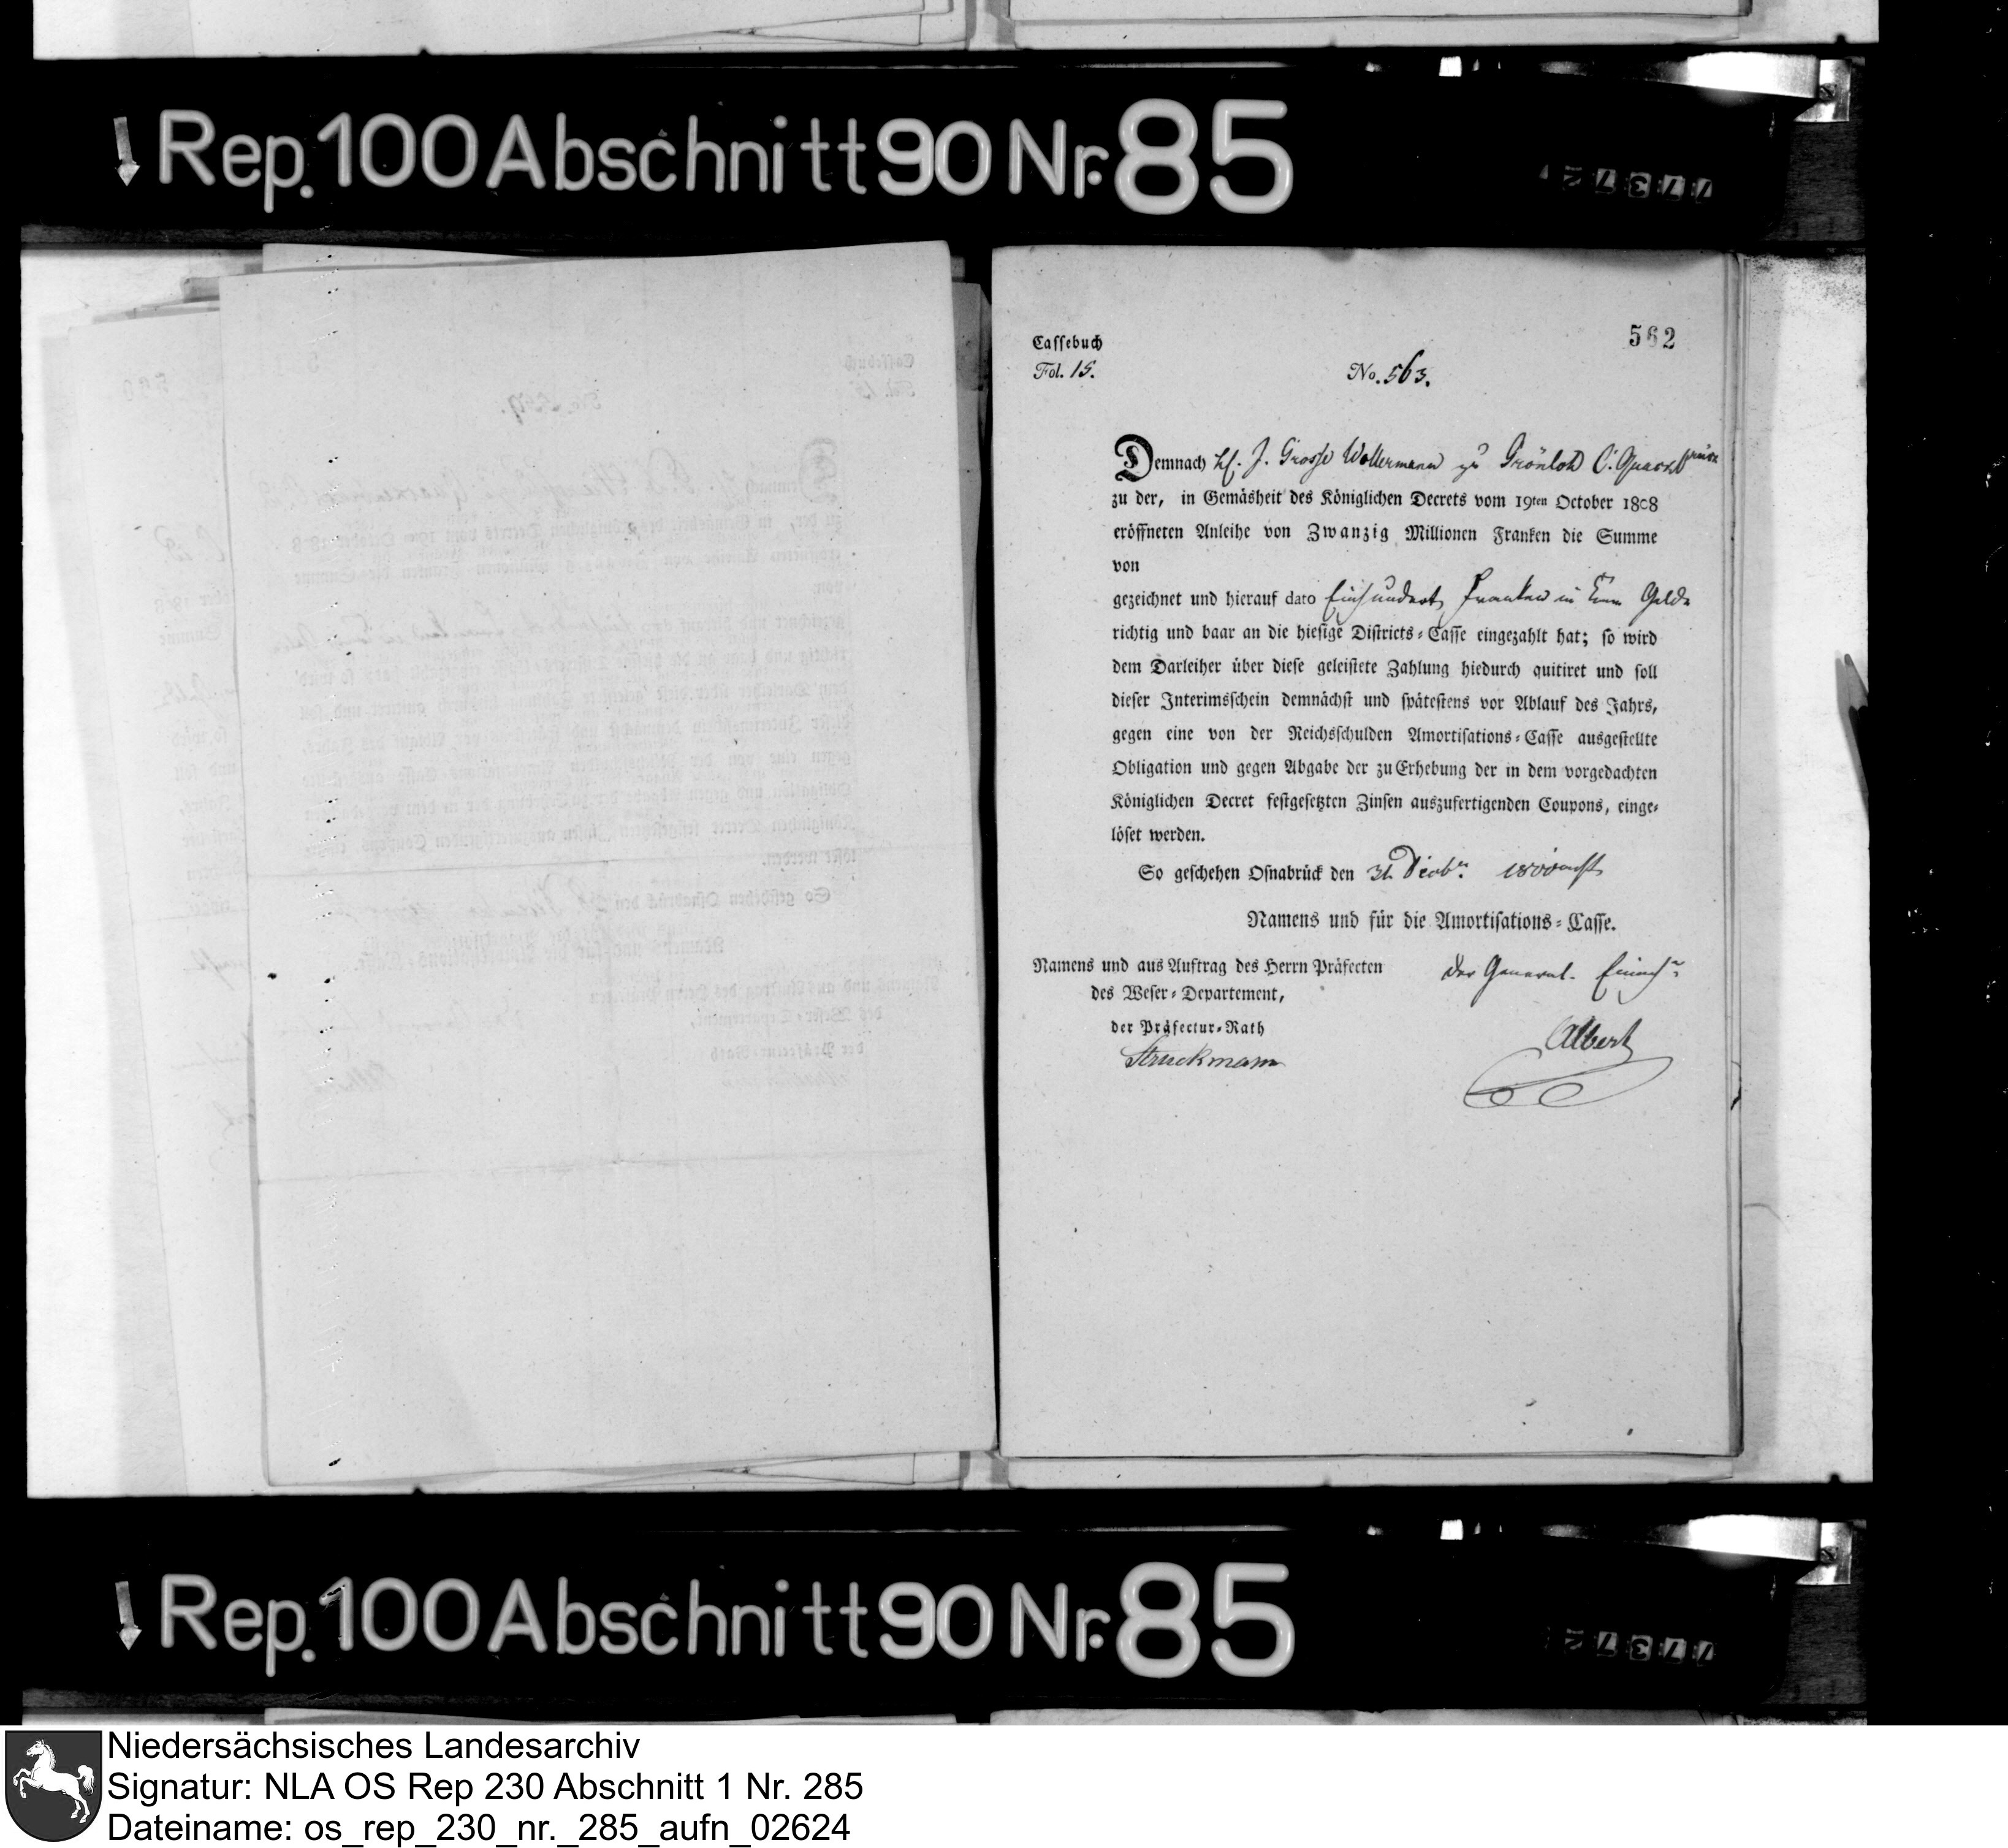 Rep. 100 Abschnitt 90 Nr. 85
562
Cassebuch
Fol. 15.
No. 563.
Demnach H. J. Grosse Wollermann zu Grönloh C. Quackenbrück
zu der, in Gemäsheit des Königlichen Decrets vom 19ten October 1808
eröffneten Anleihe von Zwanzig Millionen Franken die Summe
von
gezeichnet und hierauf dato Einhundert Franken in Gelde
richtig und baar an die hiesige Districts-Casse eingezahlt hat; so wird
dem Darleiher über diese geleistete Zahlung hiedurch quitiret und soll
dieser Interimsschein demnächst und spätestens vor Ablauf des Jahrs,
gegen eine von der Reichsschulden Amortisations-Casse ausgestellte
Obligation und gegen Abgabe der zu Erhebung der in dem vorgedachten
Königlichen Decret festgesetzten Zinsen auszufertigenden Coupons, einge-
löset werden.
So geschehen Osnabrück den 31 Decbr. 1808
Namens und für die Amortisations-Casse.
Namens und aus Auftrag des Herrn Präfecten
des Weser-Departement,
der Präfectur-Rath
Struckmann
der General-Einnehmer
Albert
Rep. 100 Abschnitt 90 Nr. 85
Niedersächsisches Landesarchiv
Signatur: NLA OS Rep 230 Abschnitt 1 Nr. 285
Dateiname: os_rep_230_nr._285_aufn_02624